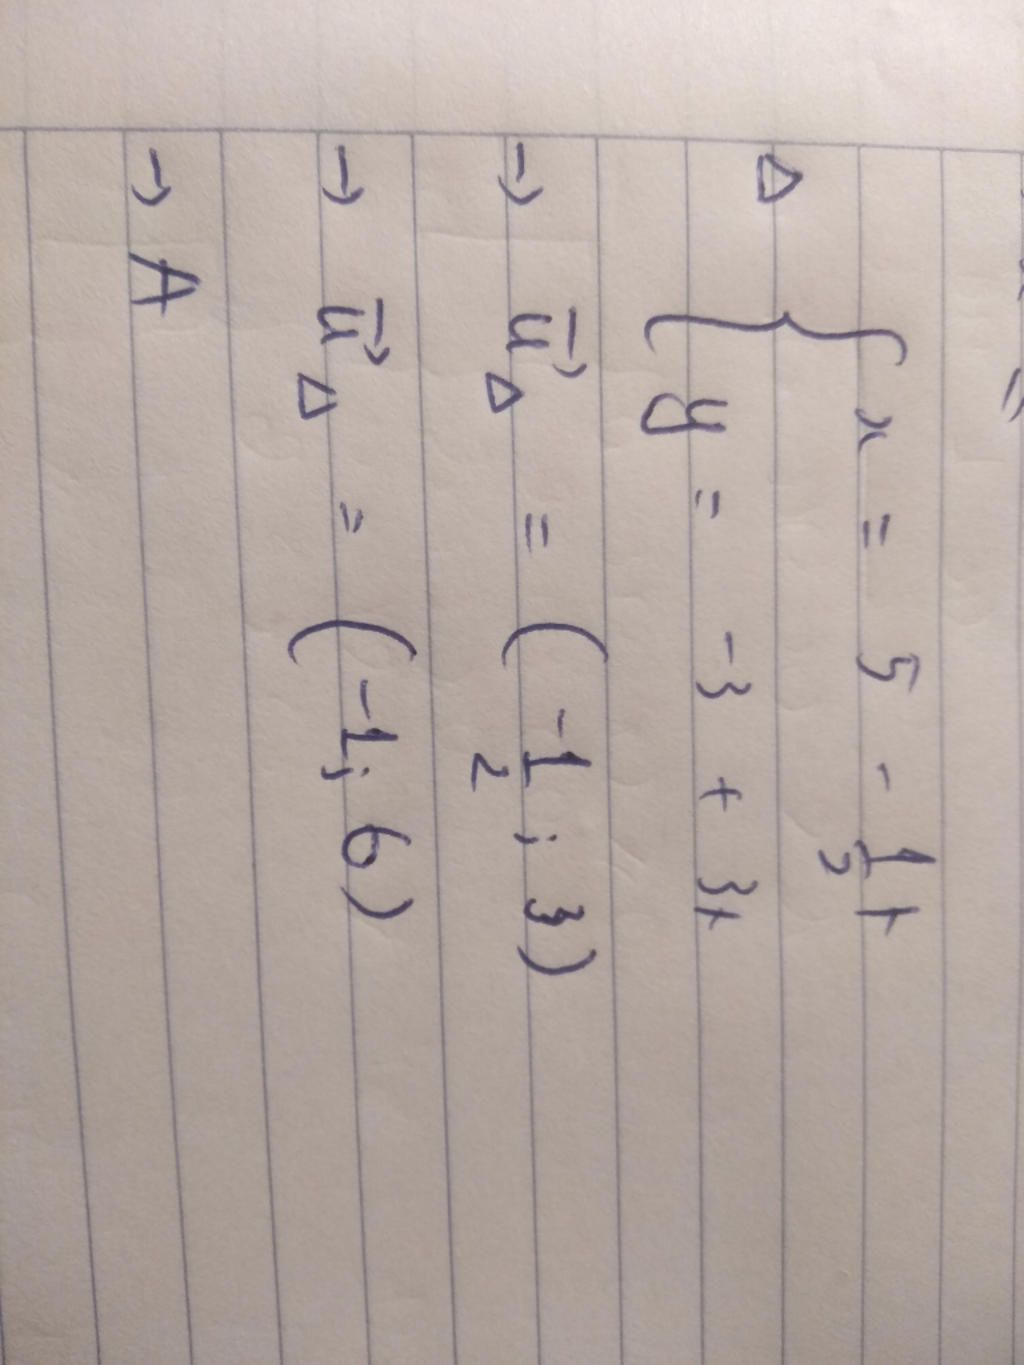 Δ { x = 5 - 1/2 t
y = -3 + 3t
→ u⃗Δ = (-1/2 ; 3)
→ u⃗Δ = (-1; 6)
→ A